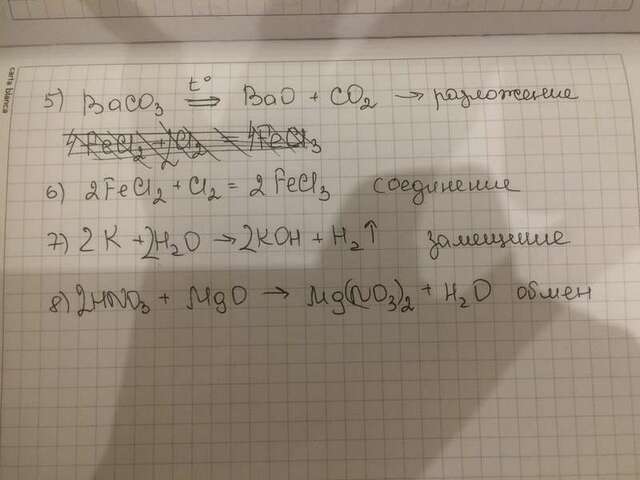 carta bianca
5) BaCO₃ t° ⇒ BaO + CO₂ → разложение
4FeCl₂ + 2Cl₂ = 4FeCl₃
6) 2FeCl₂ + Cl₂ = 2FeCl₃ соединение
7) 2K + 2H₂O → 2KOH + H₂↑ замещение
8) 2HNO₃ + MgO → Mg(NO₃)₂ + H₂O обмен